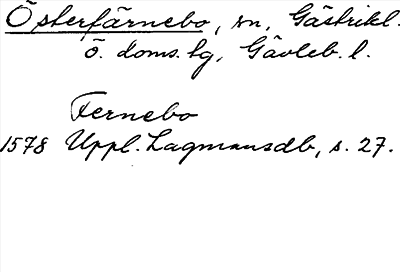 Österfärnebo, sn, Gästrikl.
ö. doms.tg, Gävleb. l.
Fernebo
1578 Uppl. Lagmansdb, s. 27.